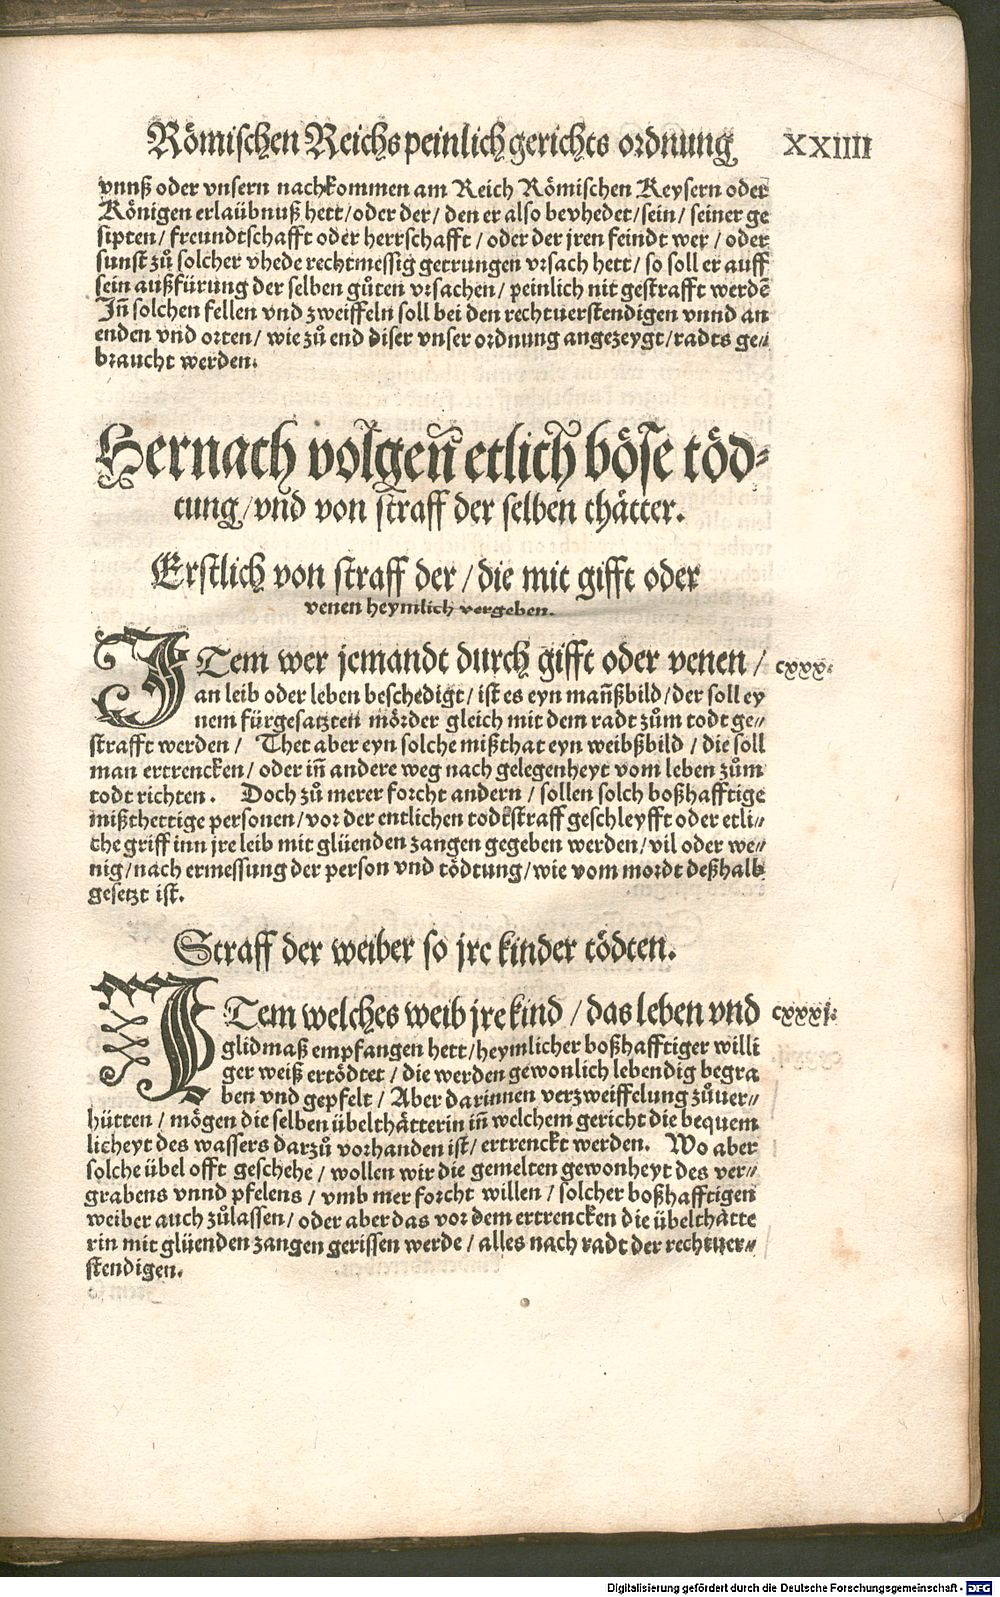 Römischen Reichs peinlich gerichts ordnung XXIIII
vnnß oder vnsern nachkommen am Reich Römischen Keysern oder
Königen erlaübnuß hett/oder der/ den er also bevhedet/sein/ seiner ge
sipten/ freundtschafft oder herrschafft / oder der jren feindt wer / oder
sunst zů solcher vhede rechtmessig getrungen vrsach hett/ so soll er auff
sein außfürung der selben gůten vrsachen/ peinlich nit gestrafft werdē
Jñ solchen fellen vnd zweiffeln soll bei den rechtuerstendigen vnnd an
enden vnd orten/ wie zů end diser vnser ordnung angezeygt/radts ge⸗
braucht werden.
Hernach volgeñ etlich böse töd⸗
tung/vnd von straff der selben thätter.
Erstlich von straff der / die mit gifft oder
venen heymlich vergeben.
JTem wer jemandt durch gifft oder venen / cxxx.
an leib oder leben beschedigt/ ist es eyn mañßbild/der soll ey
nem fürgesatzten mörder gleich mit dem radt zům todt ge⸗
strafft werden / Thet aber eyn solche mißthat eyn weibßbild / die soll
man ertrencken/ oder iñ andere weg nach gelegenheyt vom leben zům
todt richten. Doch zů merer forcht andern / sollen solch boßhafftige
mißthettige personen/vor der entlichen todtstraff geschleyfft oder etli⸗
che griff inn jre leib mit glüenden zangen gegeben werden/vil oder we⸗
nig/nach ermessung der person vnd tödtung/wie vom mordt deßhalb
gesetzt ist.
Straff der weiber so jre kinder tödten.
JTem welches weib jre kind / das leben vnd cxxxj.
glidmaß empfangen hett/heymlicher boßhafftiger willi
ger weiß ertödtet / die werden gewonlich lebendig begra
ben vnd gepfelt / Aber darinnen verzweiffelung zůuer⸗
hütten / mögen die selben übelthätterin iñ welchem gericht die bequem
licheyt des wassers darzů vorhanden ist/ ertrenckt werden. Wo aber
solche übel offt geschehe / wollen wir die gemelten gewonheyt des ver⸗
grabens vnnd pfelens / vmb mer forcht willen / solcher boßhafftigen
weiber auch zůlassen/ oder aber das vor dem ertrencken die übelthätte
rin mit glüenden zangen gerissen werde / alles nach radt der rechtuer⸗
stendigen.
Digitalisierung gefördert durch die Deutsche Forschungsgemeinschaft - DFG